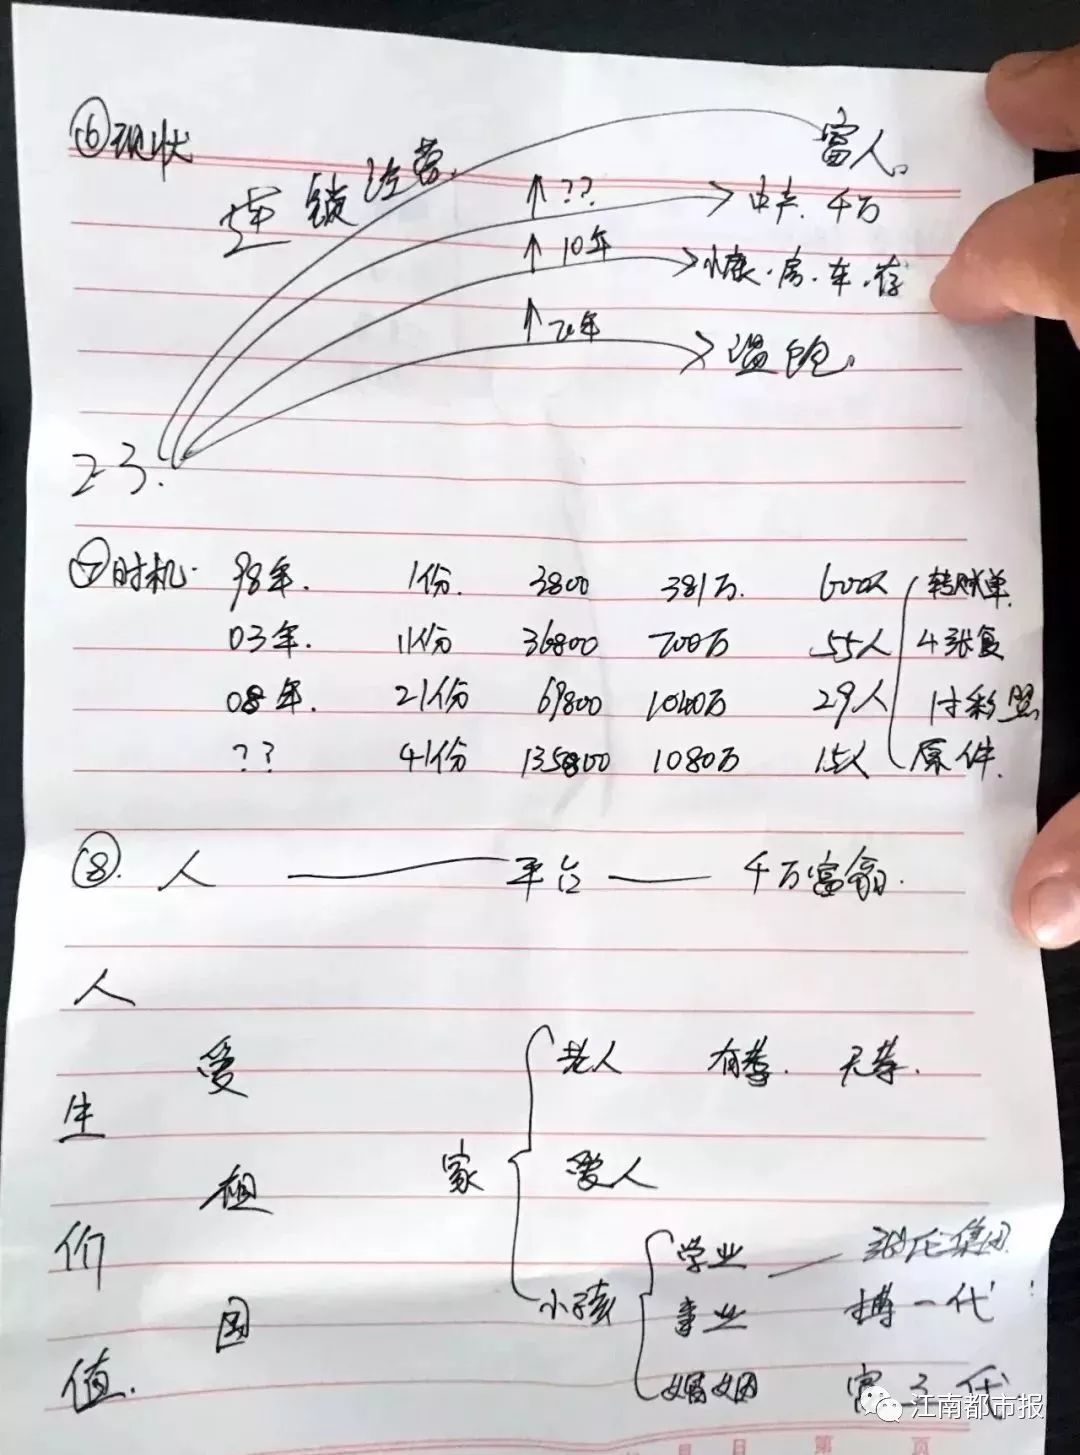 ⑥现状
连锁经营.
富人.
↑??
中产.千万
↑10年
小康.房.车.存
↑20年
温饱.
2-3.
⑦时机. 98年. 1份. 3800 381万. 600人 转账单.
03年. 11份 36800 700万 55人 4张复
08年. 21份 69800 1040万 29人 1寸彩照
?? 41份 135800 1080万 15人 原件.
⑧. 人 平台 千万富翁.
人生价值.
爱祖国
家
老人 有尊. 无尊.
爱人
小孩
学业 集团
事业 搏一代
婚姻 富三代
江南都市报
月 日 第 页